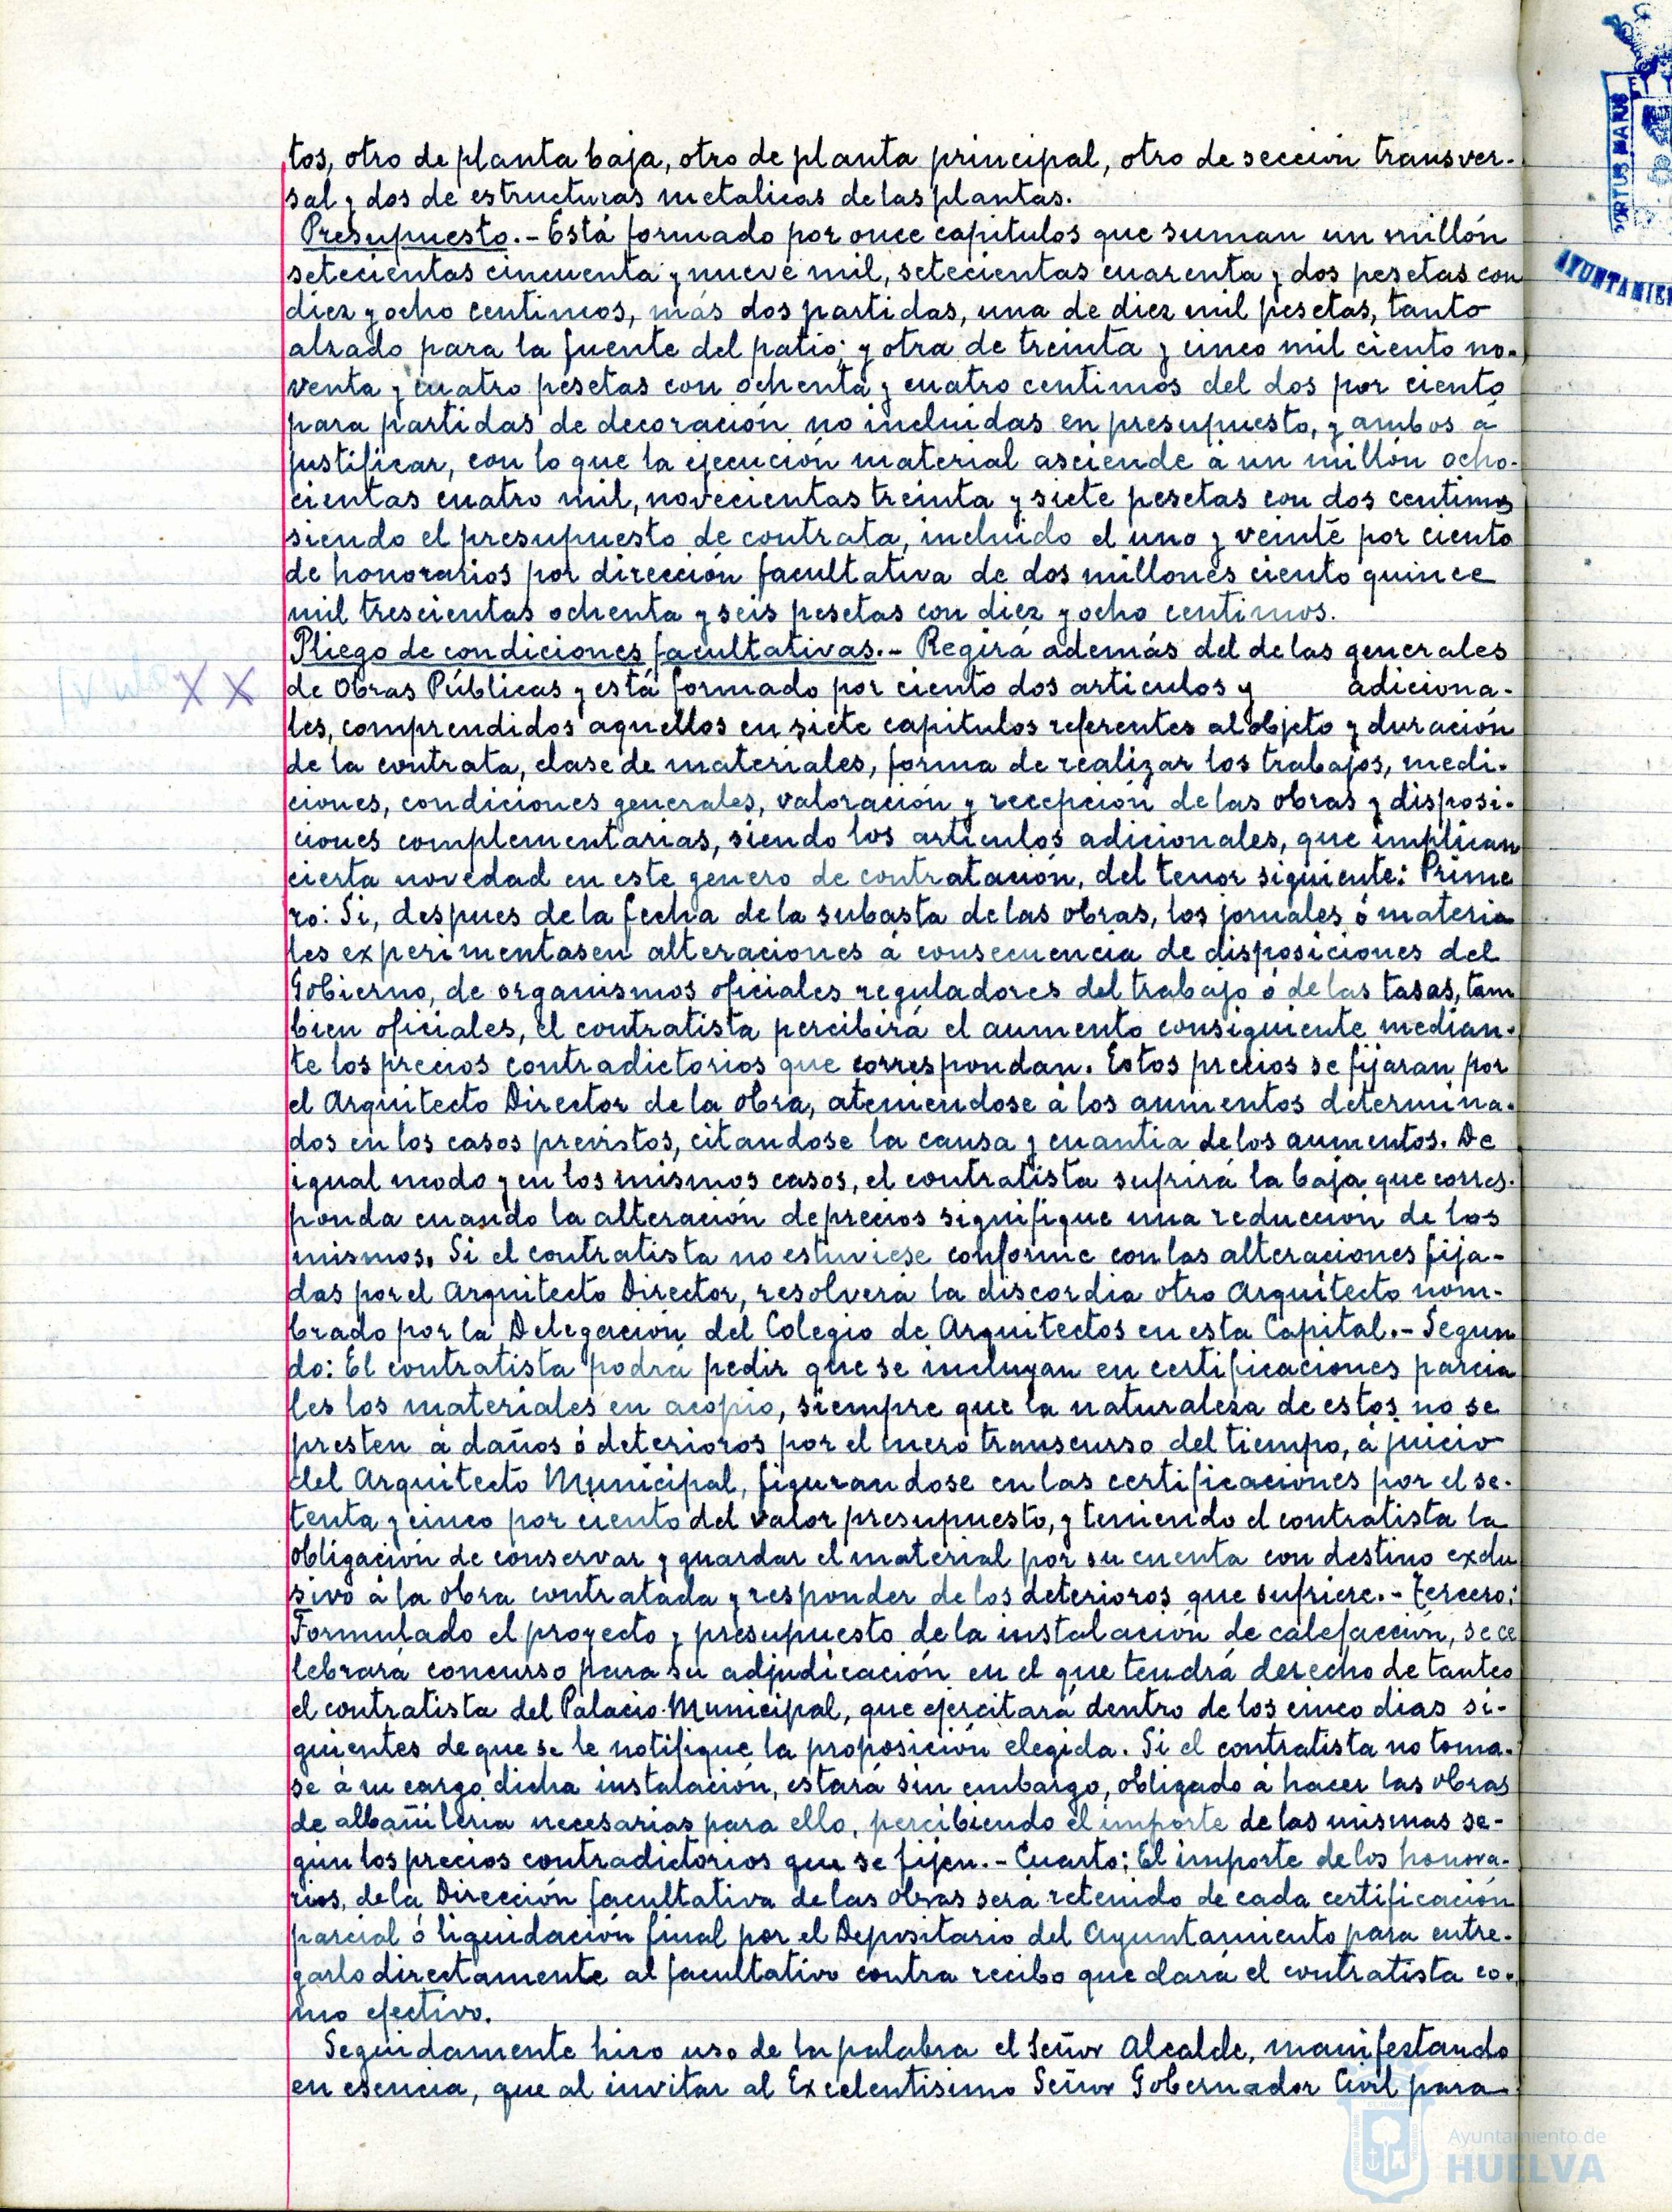 tos, otro de planta baja, otro de planta principal, otro de sección transver-
sal y dos de estructuras metalicas de las plantas.
Presupuesto.- Está formado por once capitulos que suman un millón
setecientas cincuenta y nueve mil, setecientas cuarenta y dos pesetas con
diez y ocho centimos, más dos partidas, una de diez mil pesetas, tanto
alzado para la fuente del patio; y otra de treinta y cinco mil ciento no-
venta y cuatro pesetas con ochenta y cuatro centimos del dos por ciento
para partidas de decoración no incluidas en presupuesto, y ambos á
justificar, con lo que la ejecución material asciende á un millón ocho-
cientas cuatro mil, novecientas treinta y siete pesetas con dos centimos
siendo el presupuesto de contrata, incluido el uno y veinte por ciento
de honorarios por dirección facultativa de dos millones ciento quince
mil trescientas ochenta y seis pesetas con diez y ocho centimos.
Pliego de condiciones facultativas.- Regirá además del de las generales
X X de Obras Públicas y está formado por ciento dos articulos y adiciona-
les, comprendidos aquellos en siete capitulos referentes al objeto y duración
de la contrata, clase de materiales, forma de realizar los trabajos, medi-
ciones, condiciones generales, valoración y recepción de las obras y disposi-
ciones complementarias, siendo los articulos adicionales, que implican
cierta novedad en este genero de contratación, del tenor siguiente: Prime
ro: Si, despues de la fecha de la subasta de las obras, los jornales ó materia
les experimentasen alteraciones á consecuencia de disposiciones del
Gobierno, de organismos oficiales reguladores del trabajo ó de las tasas, tam
bien oficiales, el contratista percibirá el aumento consiguiente median-
te los precios contradictorios que correspondan. Estos precios se fijaran por
el Arquitecto Director de la obra, ateniendose á los aumentos determina-
dos en los casos previstos, citandose la causa y cuantia de los aumentos. De
igual modo y en los mismos casos, el contratista sufrirá la baja que corres-
ponda cuando la alteración de precios signifique una reducción de los
mismos. Si el contratista no estuviese conforme con las alteraciones fija-
das por el Arquitecto Director, resolverá la discordia otro Arquitecto nom-
brado por la Delegación del Colegio de Arquitectos en esta Capital.- Segun
do: El contratista podrá pedir que se incluyan en certificaciones parcia
les los materiales en acopio, siempre que la naturaleza de estos no se
presten á daños ó deterioros por el mero transcurso del tiempo, á juicio
del Arquitecto Municipal, figurandose en las certificaciones por el se-
tenta y cinco por ciento del valor presupuesto, y teniendo el contratista la
obligación de conservar y guardar el material por su cuenta con destino exclu
sivo á la obra contratada y responder de los deterioros que sufriere.- Tercero:
Formulado el proyecto y presupuesto de la instalación de calefacción, se ce
lebrará concurso para su adjudicación en el que tendrá derecho de tanteo
el contratista del Palacio Municipal, que ejercitará dentro de los cinco dias si-
guientes de que se le notifique la proposición elegida. Si el contratista no toma-
se á su cargo dicha instalación, estará sin embargo, obligado á hacer las obras
de albañileria necesarias para ello, percibiendo el importe de las mismas se-
gún los precios contradictorios que se fijen.- Cuarto: El importe de los honora-
rios, de la Dirección facultativa de las obras será retenido de cada certificación
parcial ó liquidación final por el Depositario del Ayuntamiento para entre-
garlo directamente al facultativo contra recibo que dará el contratista co-
mo efectivo.
Seguidamente hizo uso de la palabra el Señor Alcalde, manifestando
en esencia, que al invitar al Excelentisimo Señor Gobernador Civil para
PORTUS MARIS
AYUNTAMIEN
Ayuntamiento de
HUELVA